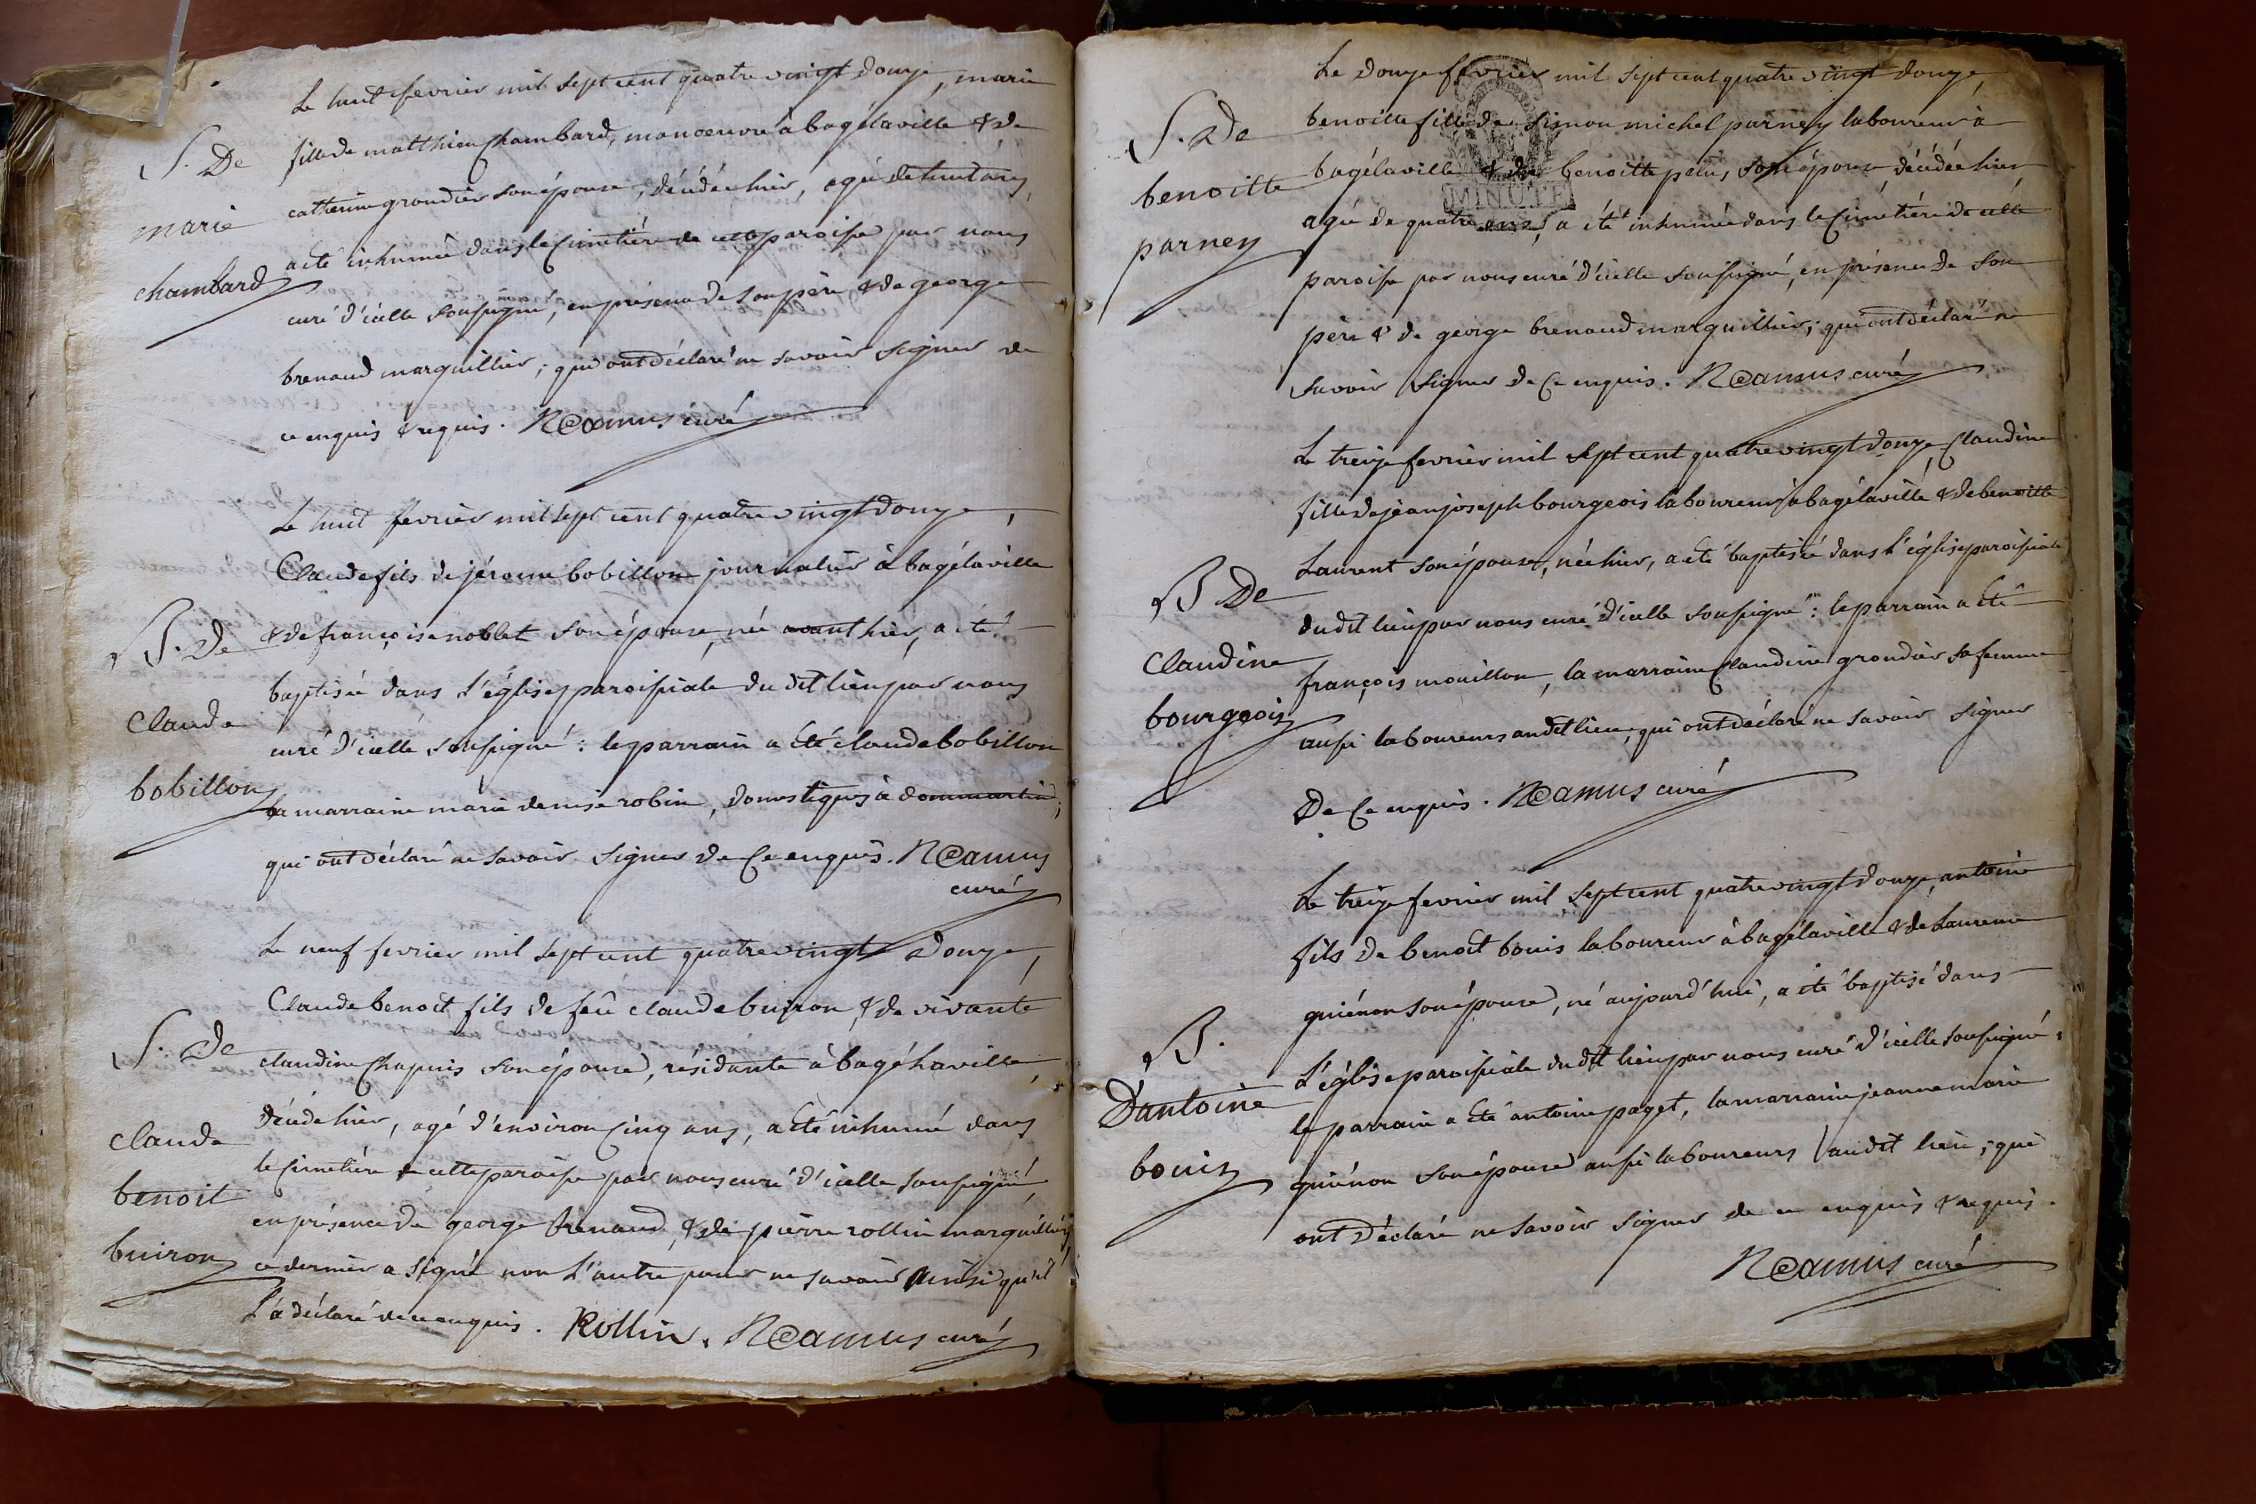 S. De
marie
chambard
Le huit fevrier mil sept cent quatre vingt douze, marie
fille de matthieu Chambard, manoeuvre à bagélaville & de
catherine grondier son épouse, décédée hier, agée de huit ans,
a eté inhumée dans le Cimetière de cette paroisse par nous
curé d'icelle soussigné, en présence de son père & de george
brenaud marguillier; qui ont déclaré ne savoir signer de
ce enquis & requis. N Camus curé
B. De
Claude
bobillon
Le huit fevrier mil sept cent quatre vingt douze,
Claude fils de jérome bobillon journalier à bagélaville
& de françoise noblet son épouse, né avant hier, a eté
baptisée dans l'église paroissiale du dit lieu par nous
curé d'icelle soussigné: le parrain a Eté claude bobillon
la marraine marie denise robin, domestiques à dommartin;
qui ont déclaré ne savoir signer de Ce enquis. N Camus
curé
S. De
claude
benoit
buiron
Le neuf fevrier mil sept cent quatre vingt douze,
Claude benoit fils de feû claude buiron & de vivante
claudine Chapuis son épouse, résidante à bagélaville,
décédé hier, agé d'environ Cinq ans, a Eté inhumé dans
le Cimetière de cette paroisse par nous curé d'icelle soussigné,
en présence de george brenaud & de pierre rollin marguilliers
ce dernier a signé non l'autre pour ne savoir ainsi qu'il
l'a déclaré de ce enquis. Rollin. N Camus curé
S. De
benoitte
parney
Le douze fevrier mil sept cent quatre vingt douze,
benoitte fille de Simon michel parney laboureur à
bagélaville & de benoitte pelus son épouse décédée hier
agée de quatre ans, a été inhumée dans le Cimetière de cette
paroisse par nous curé d'icelle soussigné, en présence de son
père & de george brenaud marguillier; qui ont déclaré ne
savoir signer de Ce enquis. N Camus curé
MINUTE
B De
Claudine
bourgeois
Le treize fevrier mil sept cent quatre vingt douze, Claudine
fille de jean joseph bourgeois laboureur à bagélaville & de benoitte
Laurent son épouse, née hier, a eté baptisée dans l'église paroissiale
dudit lieu par nous curé d'icelle soussigné: le parrain a Eté
françois mouillon, la marraine Claudine grondier sa femme
aussi laboureurs audit lieu, qui ont déclaré ne savoir signer
De Ce enquis. N Camus curé
B.
D'antoine
bouis
Le treize fevrier mil sept cent quatre vingt douze, antoine
fils de benoit bouis laboureur à bagélaville & de Laurence
guiénon son épouse, né aujourd'hui, a été baptisé dans
l'église paroissiale du dit lieu par nous curé d'icelle soussigné:
le parrain a Eté antoine paget, la marraine jeanne marie
guiénon son épouse aussi laboureurs audit lieu; qui
ont déclaré ne savoir signer de ce enquis & requis.
N Camus curé